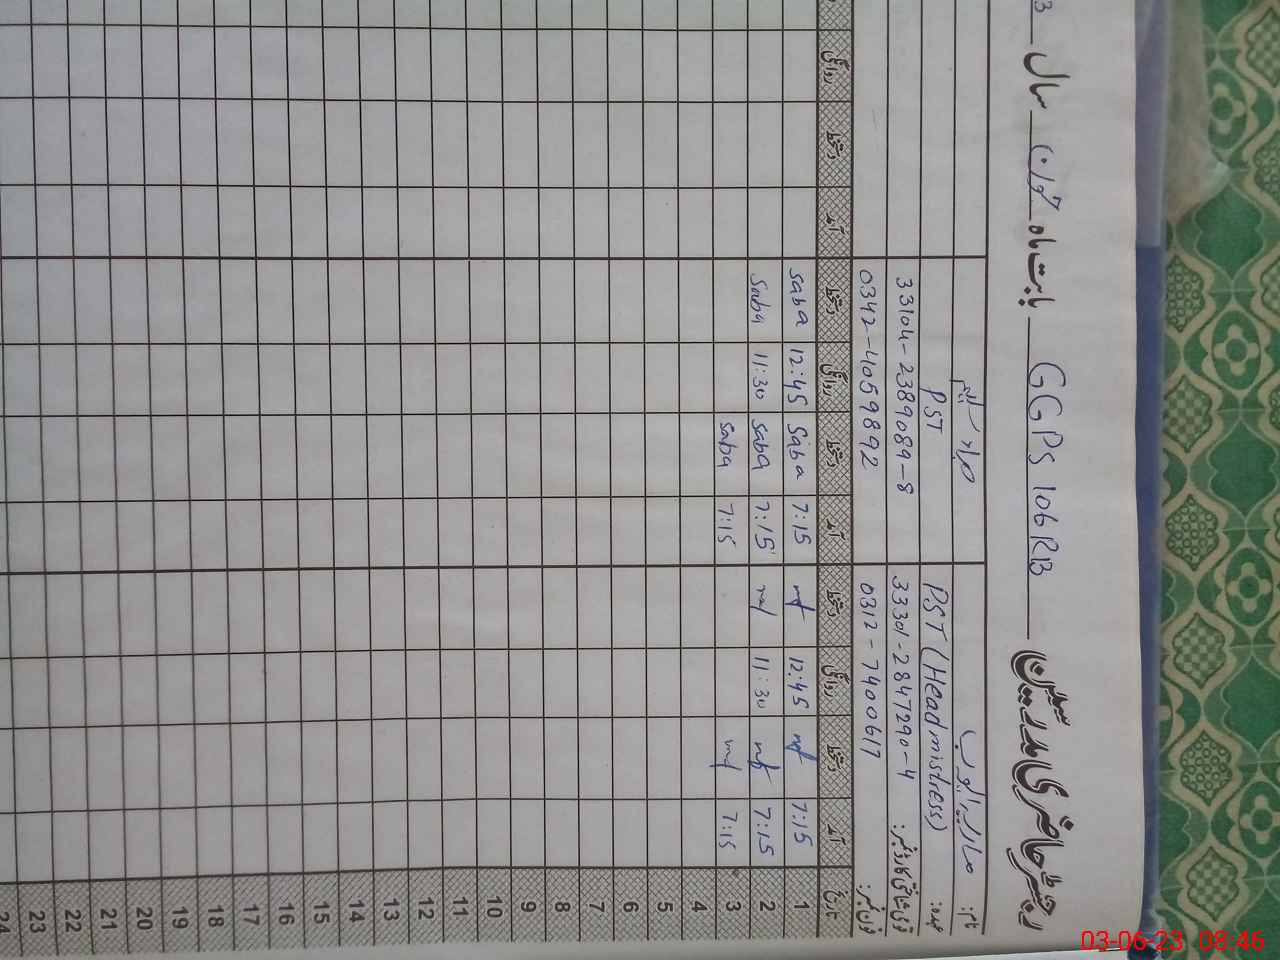 رجسٹر حاضری مدرسین GGPS 106RB بابت ماہ جون سال
نام:
عہدہ: PST (Headmistress) PST
قومی شناختی کارڈ نمبر: 33301-2847290-4 33104-2389089-8
فون نمبر: 0312-7400617 0342-4059892
تاریخ آمد دستخط روانگی دستخط آمد دستخط روانگی دستخط آمد دستخط روانگی
1 7:15 12:45 7:15 Saba 12:45 saba
2 7:15 11:30 7:15 saba 11:30 Saba
3 7:15 7:15 saba
4
5
6
7
8
9
10
11
12
13
14
15
16
17
18
19
20
21
22
23
24
03-06-23 08:46